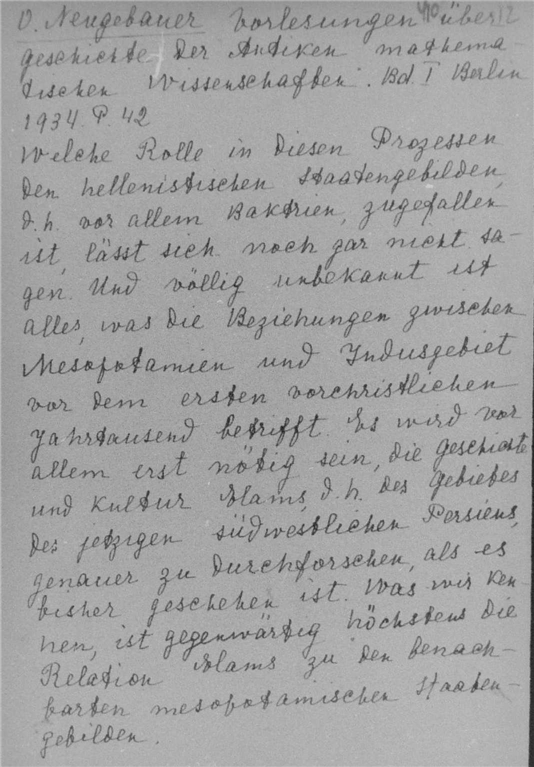 O. Neugebauer Vorlesungen über
geschichte der Antiken mathema-
tischen Wissenschaften. Bd. I Berlin
1934. P. 42
Welche Rolle in diesen Prozessen
den hellenistischen Staatengebilden,
d.h. vor allem Baktrien, zugefallen
ist, lässt sich noch gar nicht sa-
gen. Und völlig unbekannt ist
alles, was die Beziehungen zwischen
Mesopotamien und Indusgebiet
vor dem ersten vorchristlichen
Jahrtausend betrifft. Es wird vor
allem erst nötig sein, die geschichte
und Kultur Elams, d.h. des gebietes
des jetzigen südwestlichen Persiens,
genauer zu durchforschen, als es
bisher geschehen ist. Was wir ken-
nen, ist gegenwärtig höchstens die
Relation Elams zu den benach-
barten mesopotamischen Staaten-
gebilden.